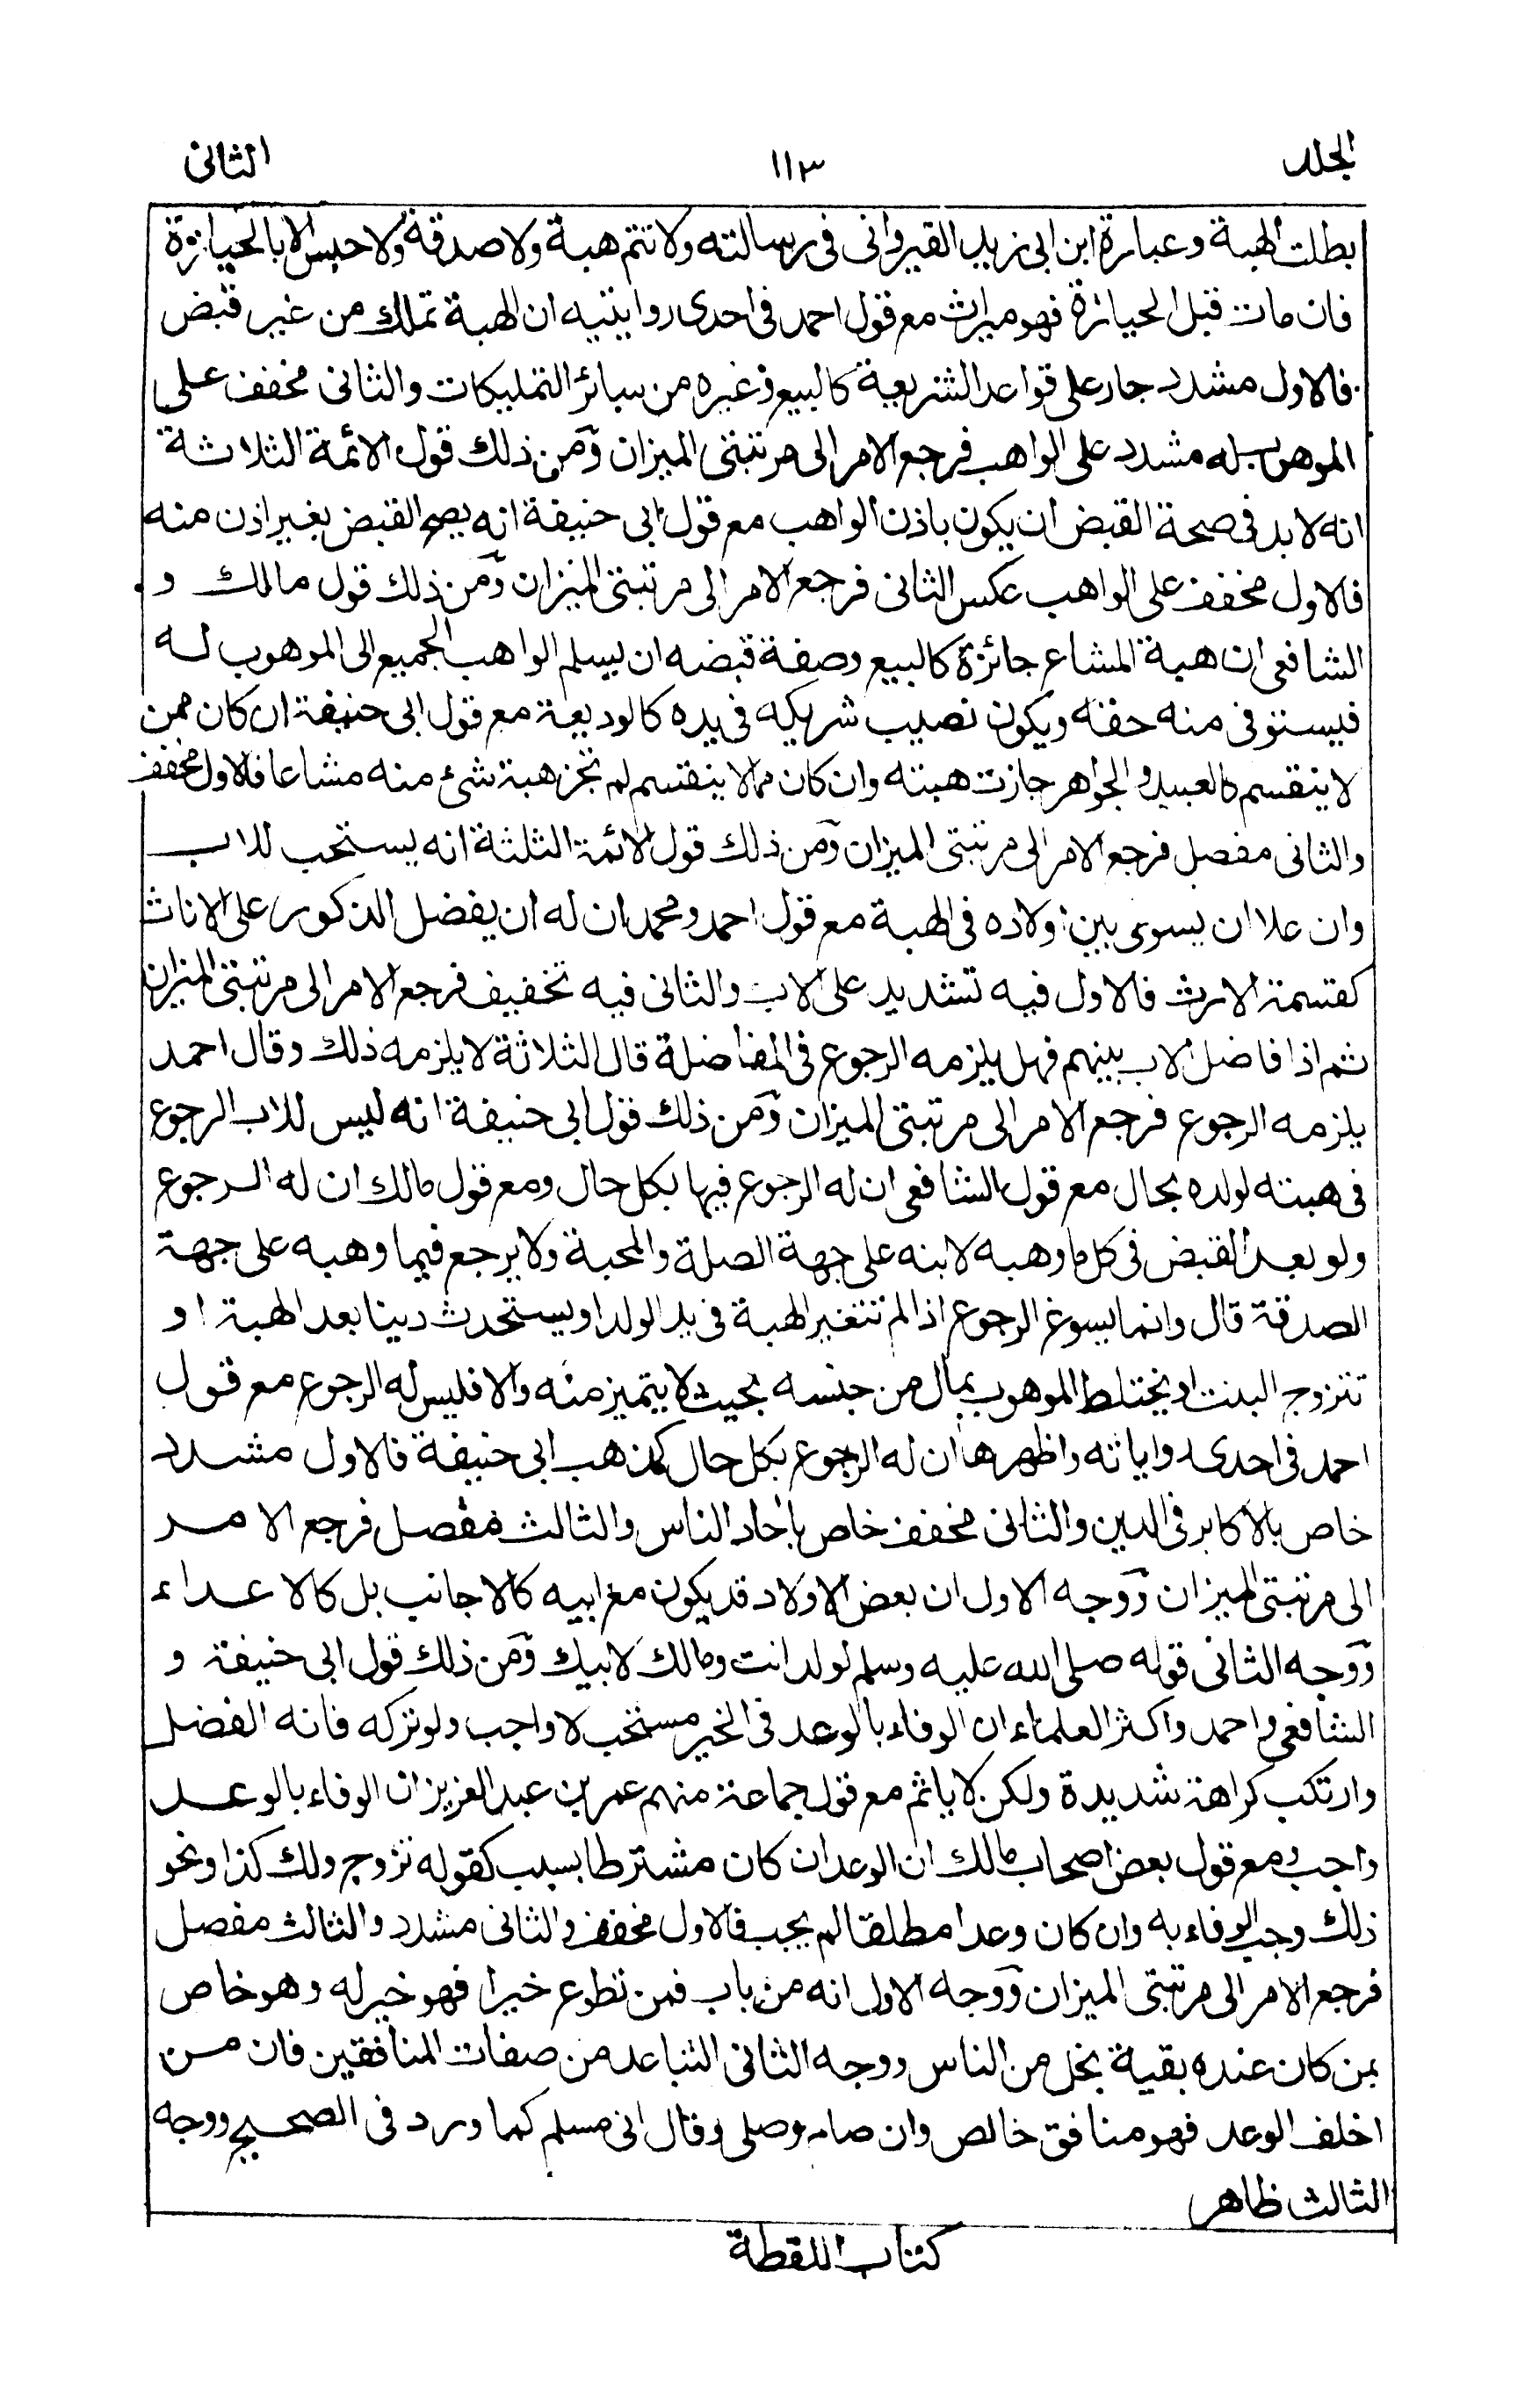 الجلد ١١٣ الثانى
بطلت الهبة وعبارة ابن ابى زيد القيروانى فى رسالته ولا تتم هبة ولا صدقة ولا حبس الا بالحيازة
فان مات قبل الحيازة فهو ميراث مع قول احمد فى احدى روايتيه ان الهبة تملك من غير قبض
فالاول مشدد جار على قواعد الشريعة كالبيع وغيره من سائر التمليكات والثانى مخفف على
الموهوب له مشدد على الواهب فرجع الامر الى مرتبتى الميزان ومن ذلك قول الائمة الثلاثة
انه لا بد فى صحة القبض ان يكون باذن الواهب مع قول ابى حنيفة انه يصح القبض بغير اذن منه
فالاول مخفف على الواهب عكس الثانى فرجع الامر الى مرتبتى الميزان ومن ذلك قول مالك و
الشافعى ان هبة المشاع جائزة كالبيع وصفة قبضه ان يسلم الواهب الجميع الى الموهوب له
فيستوفى منه حقه ويكون نصيب شريكه فى يده كالوديعة مع قول ابى حنيفة ان كان ممن
لا ينقسم كالعبيد والجواهر جازت هبته وان كان مما لا ينقسم لم تجز هبة شئ منه مشاعا فالاول مخفف
والثانى مفصل فرجع الامر الى مرتبتى الميزان ومن ذلك قول الائمة الثلثة انه يستحب للاب
وان علا ان يسوى بين اولاده فى الهبة مع قول احمد ومحمد ان له ان يفضل الذكور على الاناث
كقسمة الارث فالاول فيه تشديد على الاب والثانى فيه تخفيف فرجع الامر الى مرتبتى الميزان
ثم اذا فاضل الاب بينهم فهل يلزمه الرجوع فى المفاضلة قال الثلاثة لا يلزمه ذلك وقال احمد
يلزمه الرجوع فرجع الامر الى مرتبتى الميزان ومن ذلك قول ابى حنيفة انه ليس للاب الرجوع
فى هبته لولده بحال مع قول الشافعى ان له الرجوع فيها بكل حال ومع قول مالك ان له الرجوع
ولو بعد القبض فى كل ما وهبه لابنه على جهة الصلة والمحبة ولا يرجع فيما وهبه على جهة
الصدقة قال وانما يسوغ الرجوع اذا لم تتغير الهبة فى يد الولد او يستحدث دينا بعد الهبة او
تتزوج البنت او يختلط الموهوب بمال من جنسه بحيث لا يتميز منه والا فليس له الرجوع مع قول
احمد فى احدى رواياته واظهرها ان له الرجوع بكل حال كمذهب ابى حنيفة فالاول مشدد
خاص بالاكابر فى الدين والثانى مخفف خاص باٰحاد الناس والثالث مفصل فرجع الامر
الى مرتبتى الميزان ووجه الاول ان بعض الاولاد قد يكون مع ابيه كالاجانب بل كالاعداء
ووجه الثانى قوله صلى الله عليه وسلم لولد انت ومالك لابيك ومن ذلك قول ابى حنيفة و
الشافعى واحمد واكثر العلماء ان الوفاء بالوعد فى الخير مستحب لا واجب ولو تركه فاته الفضل
وارتكب كراهة شديدة ولكن لا ياثم مع قول جماعة منهم عمر بن عبد العزيز ان الوفاء بالوعد
واجب ومع قول بعض اصحاب مالك ان الوعد ان كان مشترطا بسبب كقوله تزوج ولك كذا ونحو
ذلك وجب الوفاء به وان كان وعدا مطلقا لم يجب فالاول مخفف والثانى مشدد والثالث مفصل
فرجع الامر الى مرتبتى الميزان ووجه الاول انه من باب فمن تطوع خيرا فهو خير له وهو خاص
بمن كان عنده بقية بخل من الناس ووجه الثانى التباعد من صفات المنافقين فان من
اخلف الوعد فهو منافق خالص وان صام وصلى وقال انى مسلم كما ورد فى الصحيح ووجه
الثالث ظاهر
كتاب اللقطة